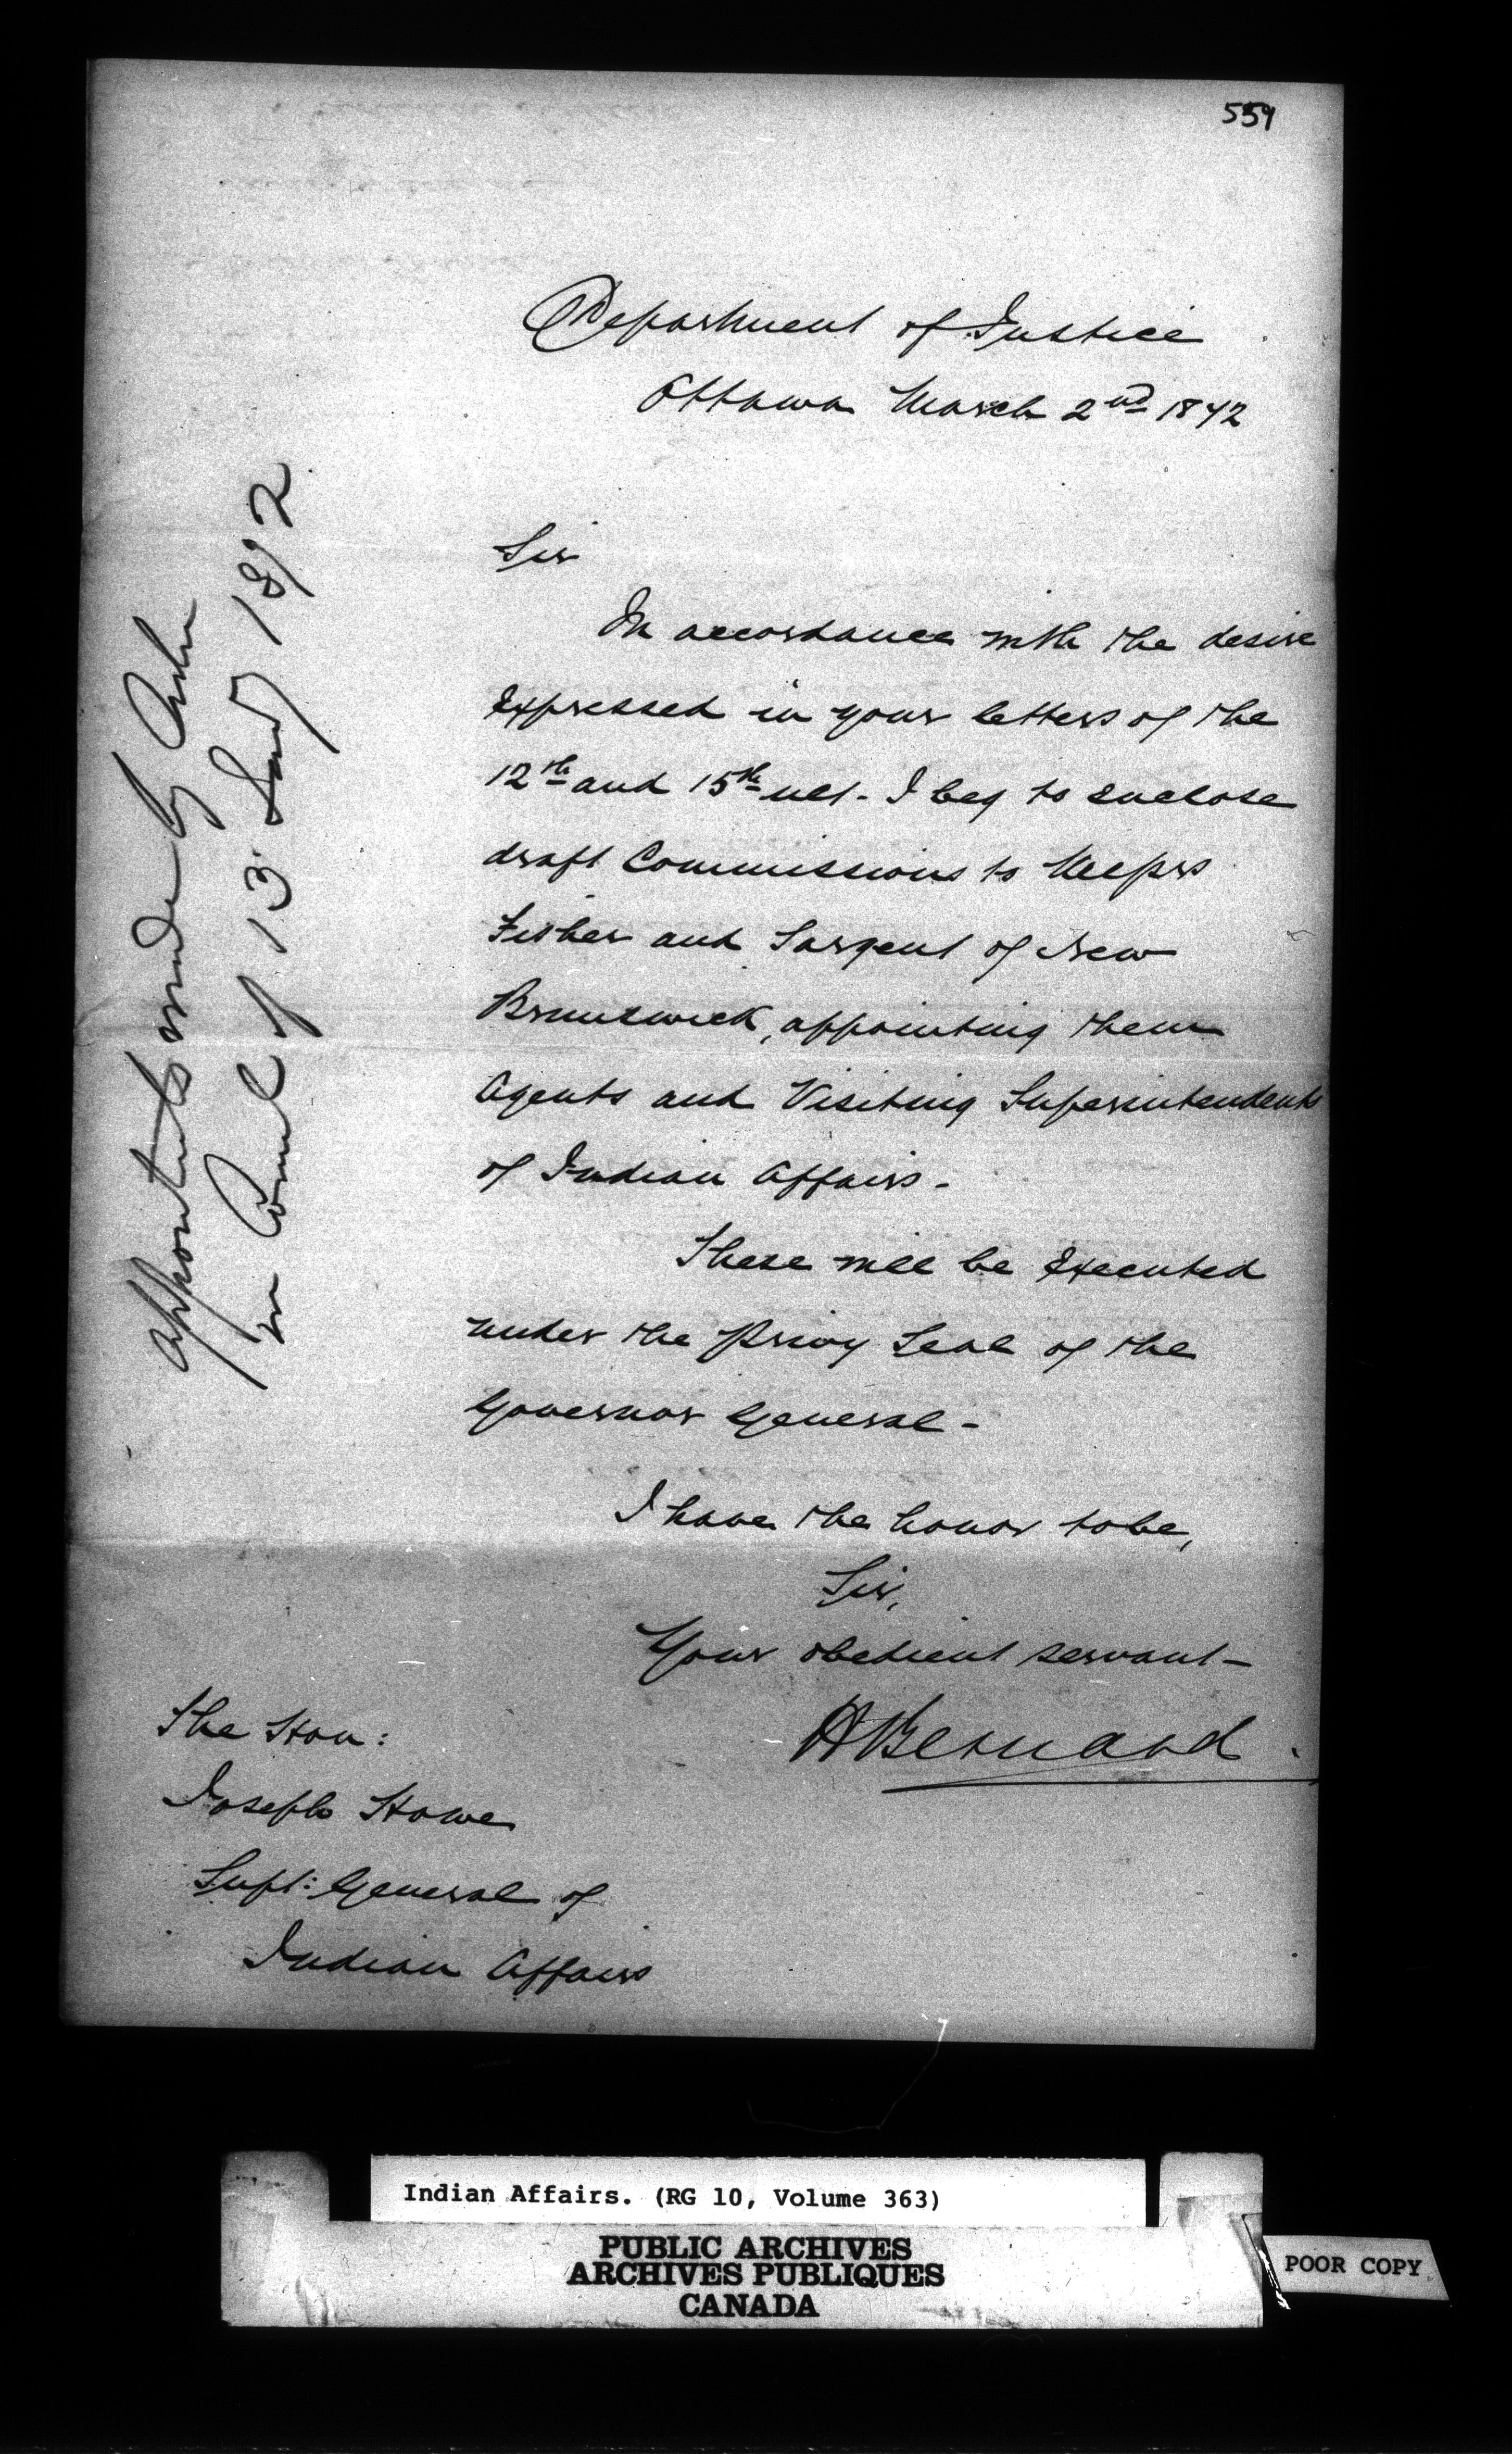 559
Department of Justice
Ottawa March 2nd 1872
Sir
In accordance with the desire
Expressed in your letters of the
12th and 15th ult. I beg to enclose
draft Commissions to Messrs
Fisher and Sargent of New
Brunswick, appointing them
Agents and Visiting Superintendents
of Indian Affairs -
These will be Executed
under the Privy Seal of the
Governor General -
I have the honor to be,
Sir,
Your obedient servant -
H Bernard
The Hon:
Joseph Howe
Supt: General of
Indian Affairs
appointmts made by Order
in Council of 13 1872
Indian Affairs. (RG 10, Volume 363)
PUBLIC ARCHIVES
ARCHIVES PUBLIQUES
CANADA
POOR COPY